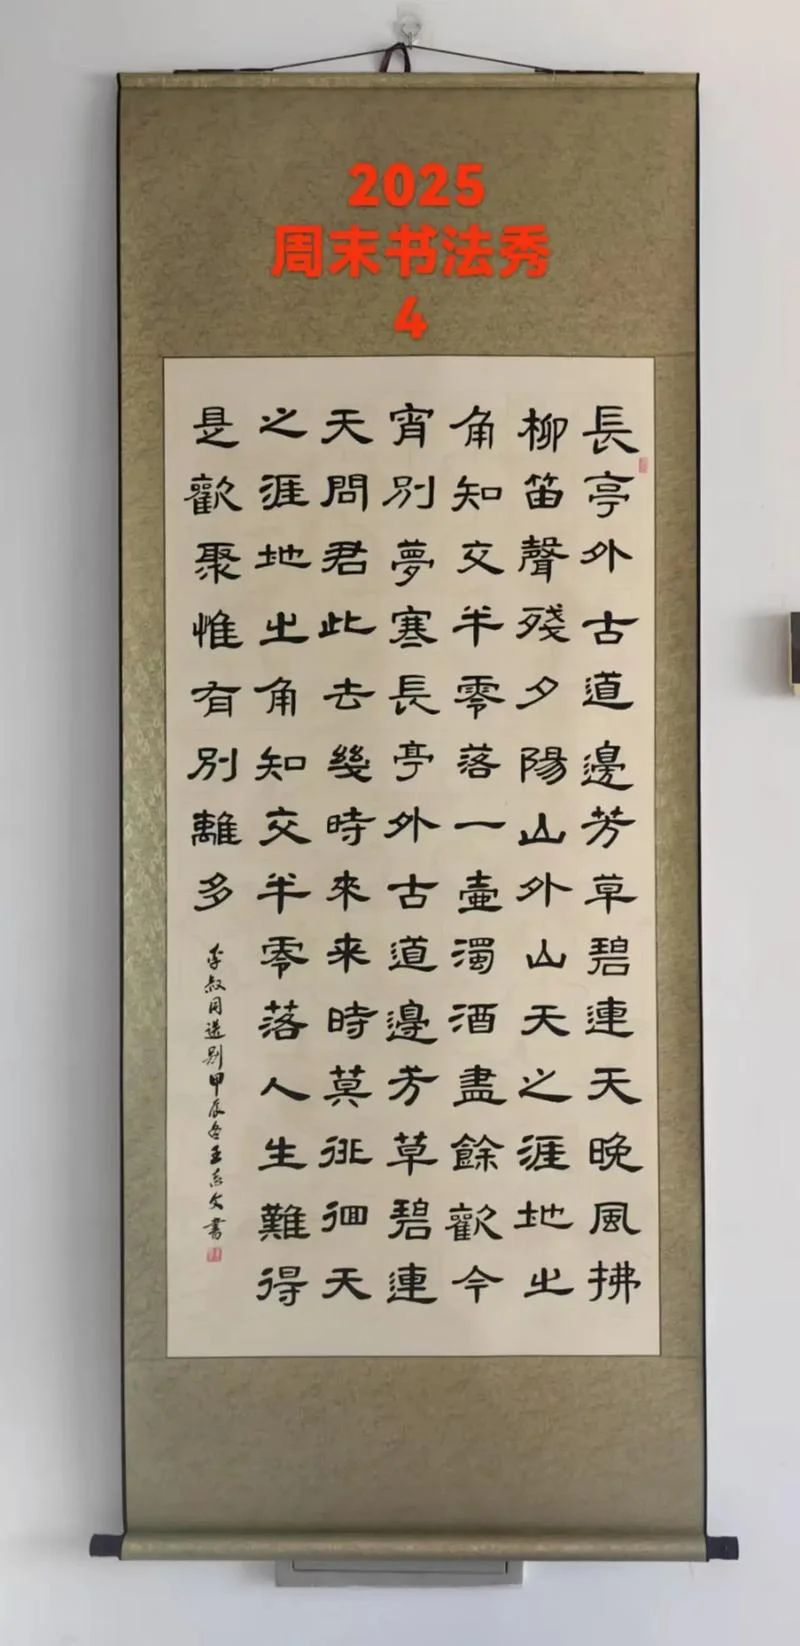 2025
周末书法秀
4
長亭外古道邊芳草碧連天晚風拂
柳笛聲殘夕陽山外山天之涯地之
角知交半零落一壺濁酒盡餘歡今
宵別夢寒長亭外古道邊芳草碧連
天問君此去幾時來来時莫徘徊天
之涯地之角知交半零落人生難得
是歡聚惟有別離多
李叔同送别甲辰冬王文書